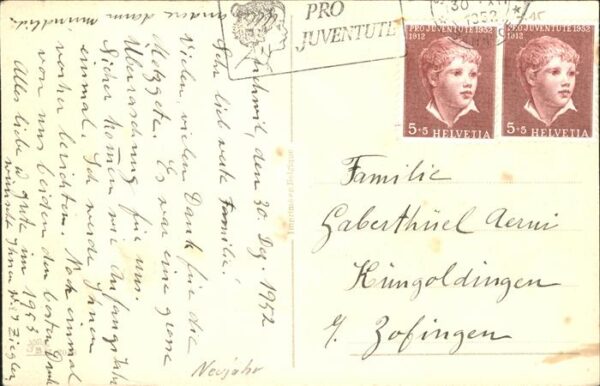 PRO
JUVENTUTE
30
1952
PRO JUVENTUTE 1952
1912
5+5 HELVETIA
PRO JUVENTUTE 1952
1912
5+5 HELVETIA
den 30. Dez. 1952
Sehr lieb werte Familie!
Vielen, vielen Dank für die
Metzgete. Es war eine grosse
Überraschung für uns.
Sicher kommen wir anfangs Jahr
einmal. Ich werde Ihnen
vorher berichten. Noch einmal
von uns beiden den besten Dank
Alles liebe & gute im 1953
wünscht Ihnen Ziegler
andere dann mündlich.
Neujahr
Imprimé en Belgique
Familie
Gaberthüel Aerni
Küngoldingen
b/ Zofingen